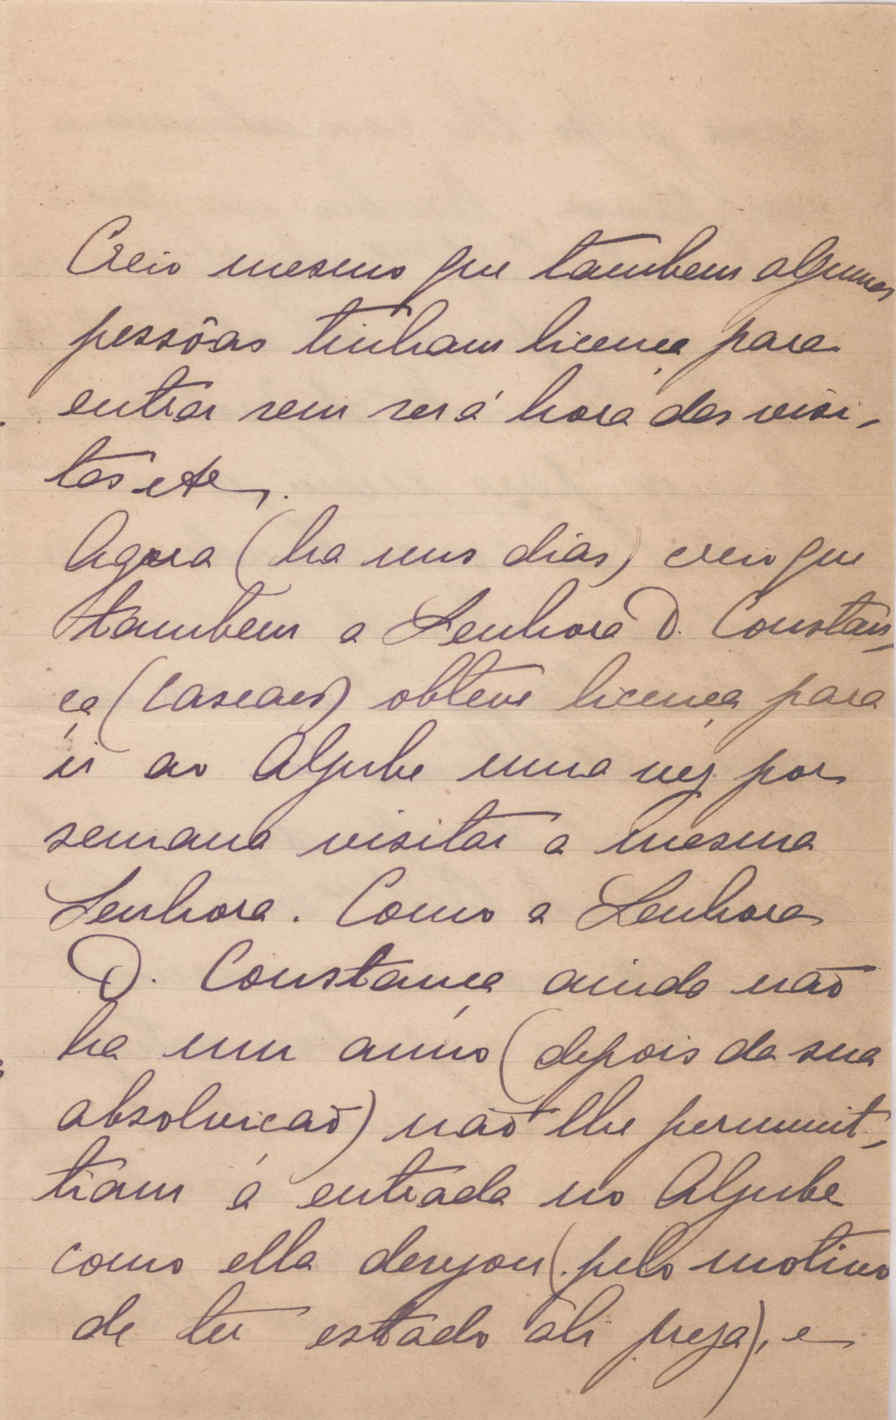 Creio mesmo que tambem algumas
pessôas tinham licença para
entrar sem ser á hora das visi-
tas etc.
Agora (ha uns dias) creio que
tambem a Senhora D. Constan-
ça (Cascaes) obteve licença para
ir ao Aljube uma vez por
semana visitar a mesma
Senhora. Como a Senhora
D. Constança ainda não
ha um anno (depois da sua
absolvicaõ) naõ lhe permmit-
tiam á entrada no Aljube
como ella desejou (pelo motivo
de ter estado ali preza), e